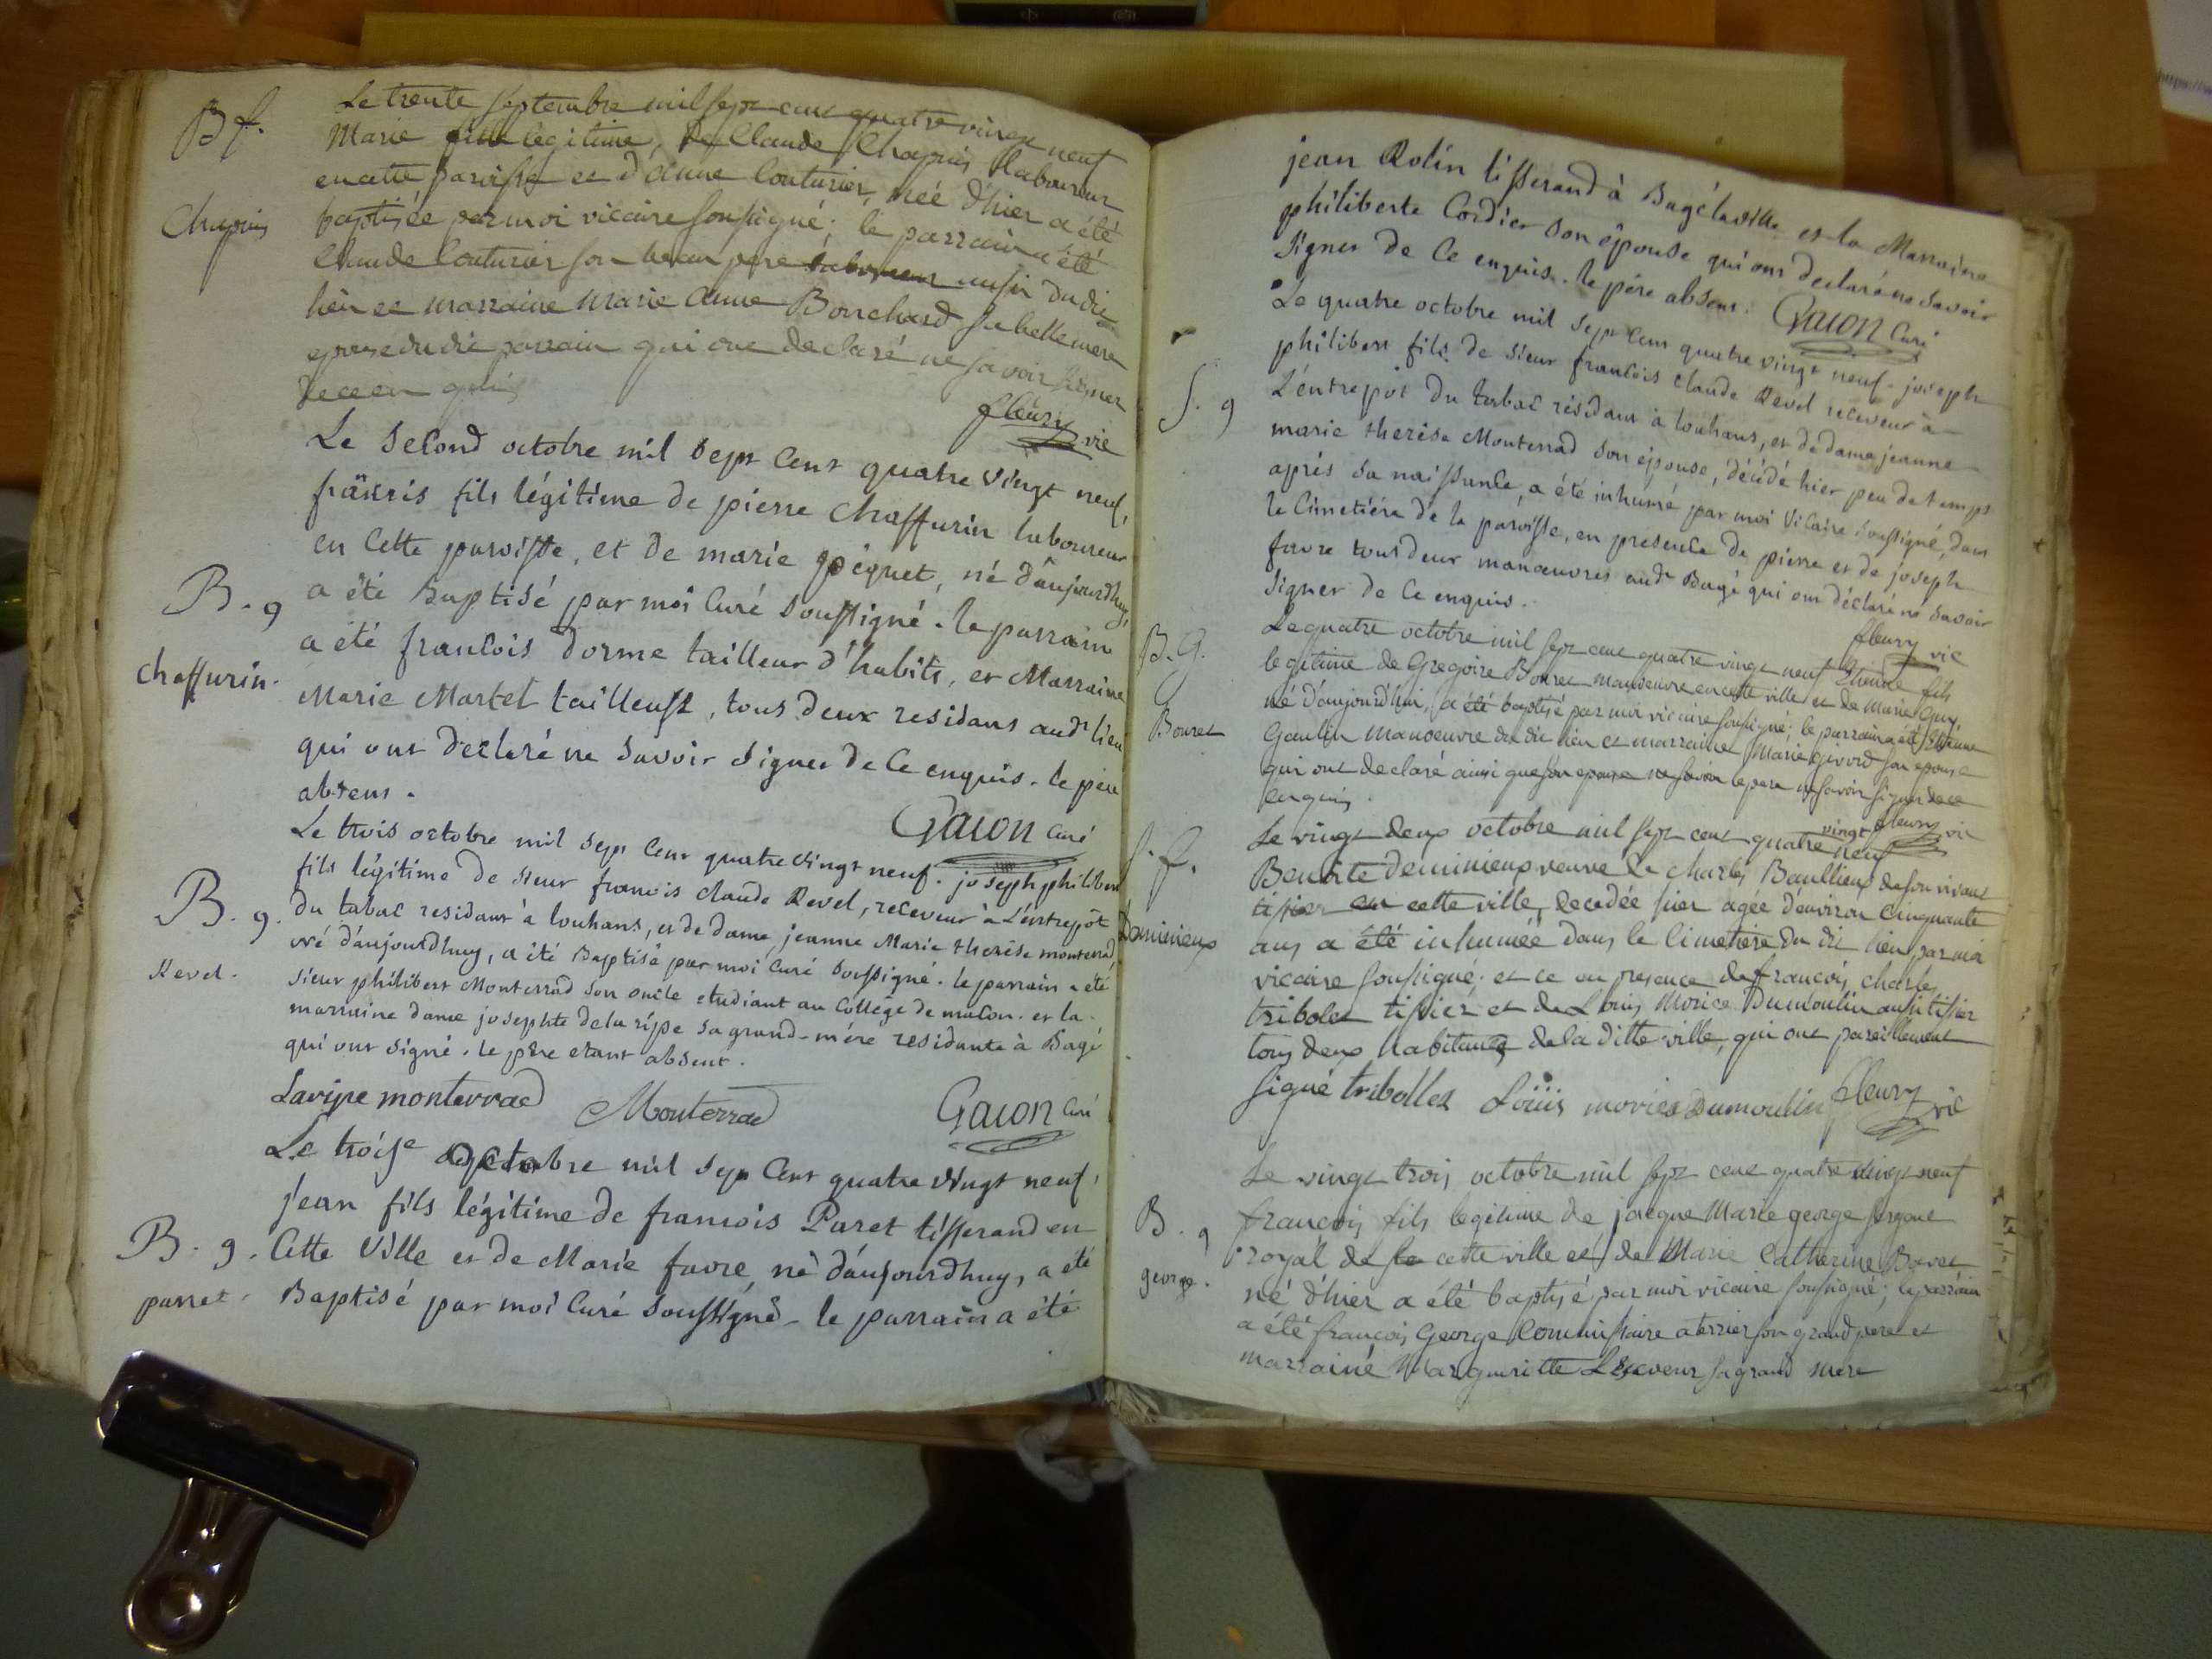 B f.
Le trente septembre mil sept cent quatre vingt neuf
Marie fille legitime de Claude Chapuis laboureur
en cette paroisse et d'anne Couturier, née d'hier a été
Chapuis
baptisée par moi vicaire soussigné; le parrain a été
Claude Couturier son beau pere laboureur aussi du dit
lieu et marraine Marie Anne Bonchard sa belle mere
epouse du dit parrain qui ont declaré ne savoir signer
de ce enquis
fleury vic
Le second octobre mil sept cent quatre vingt neuf,
francois fils légitime de pierre Chaffurin laboureur
en cette paroisse, et de marie péquet, né d'aujourdhuy,
B. g
a été Baptisé par moi Curé soussigné. le parrain
Chaffurin.
a été francois dorme tailleur d'habits, et Marraine
Marie Martel tailleuse, tous deux residans audt lieu
qui ont declaré ne savoir signer de ce enquis. le pere
absent.
Gacon Curé
Le trois octobre mil sept cent quatre vingt neuf. joseph philibert
fils légitime de sieur francois claude Revel, receveur à L'entrepôt
B. g.
du tabac residant à louhans, et de dame jeanne Marie therese monterrad
né d'aujourdhuy, a été Baptisé par moi Curé soussigné. le parrain a été
Revel.
sieur philibert Monterrad son oncle etudiant au College de macon. et la
marraine dame josephte delaripe sa grand-mére residante à Bagé
qui ont signé. le père etant absent.
Laripe monterrad Monterrad Gacon Curé
Le troise octobre mil sept cent quatre vingt neuf,
jean fils légitime de francois Paret tisserand en
B. g.
Cette ville et de Marie favre né d'aujourdhuy, a été
parret.
Baptisé par moi Curé soussigné. le parrain a été
jean Rolin tisserand à Bagélaville et la Marraine
philiberte Cordier son épouse qui ont declaré ne savoir
signer de ce enquis. le pére absent. Gacon Curé
Le quatre octobre mil sept cent quatre vingt neuf. joseph
philibert fils de sieur francois claude Revel receveur à
S. g
L'entrepôt du tabac résidant à louhans, et de dame jeanne
marie therése Monterrad son épouse, décédé hier peu de temps
aprés sa naissance, a été inhumé par moi Vicaire soussigné, dans
le Cimetiére de la paroisse, en presence de pierre et de joseph
favre tous deux manœuvres audt Bagé qui ont déclaré ne savoir
signer de ce enquis.
fleury vic
B. G.
Le quatre octobre mil sept cent quatre vingt neuf Etienne fils
legitime de Gregoire Bouret manoeuvre en cette ville et de Marie Guy,
né d'aujourd'hui, a été baptisé par moi vicaire soussigné; le parrain a été Etienne
Bouret
Gaulin manoeuvre du dit lieu et marraine Marie givord son epouse
qui ont declaré ainsi que son epouse ne savoir le pere ne savoir signer de ce
enquis.
fleury vic
S. f.
Le vingt deux octobre mil sept cent quatre vingt neuf
Benoite deminieux veuve de charles Baullieux de son vivant
tissier en cette ville, decedée hier agée d'environ cinquante
Daminieux
ans a été inhumée dans le cimetiere du dit lieu par moi
vicaire soussigné. et ce en presence de francois charles
tribolet tissier et de Louis Morice Dumoulin aussi tissier
tous deux habitants de la ditte ville, qui ont pareillement
signé tribollet Löüis morice Dumoulin fleury vic
Le vingt trois octobre mil sept cent quatre vingt neuf
B. g
francois fils legitime de jacque Marie george sergent
royal de la cette ville et de Marie Catherine Bovet
george.
né d'hier a été baptisé par moi vicaire soussigné; le parrain
a été francois George Commissaire a terrier son grand pere et
marraine Margueritte Leseveur sa grand mere